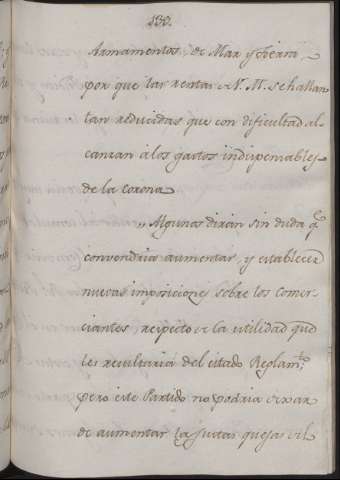 130.
Armamentos, de Mar y tierra,
por que las rentas de V. M. se hallan
tan reducidas que con dificultad al-
canzan á los gastos indispensables
de la Corona
„ Algunos dirán sin duda q.e
convendria aumentar, y establecer
nuevas imposiciones sobre los comer-
ciantes, respecto de la utilidad que
les resultaria del citado Reglam.to;
pero este Partido no podria dexar
de aumentar las justas quejas del